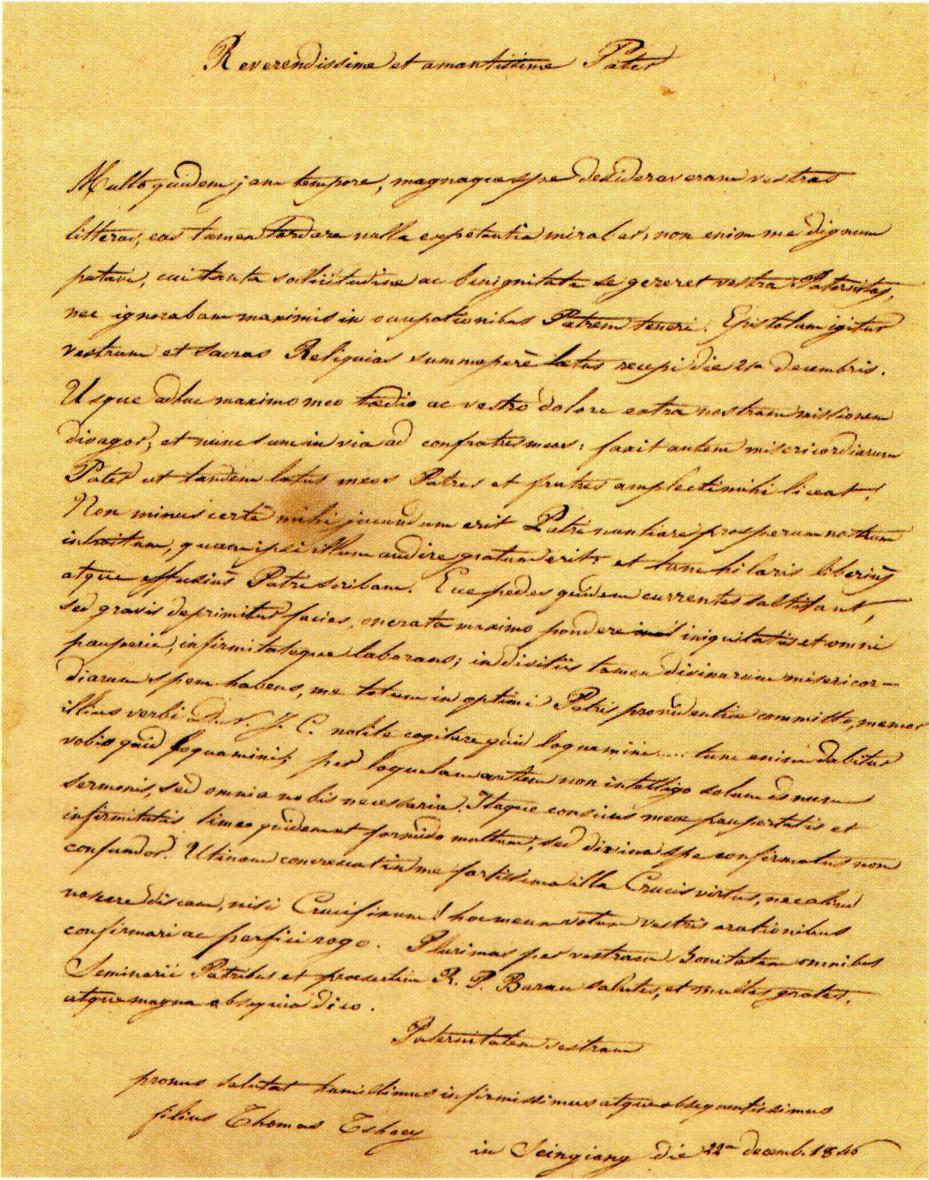 Reverendissime et amantissime Pater
Multo quidem jam tempore, magnaque spe desideraveram vestras
litteras, eas tamen tardare nulla expetentia mirabar, non enim me dignum
putavi, cui tanta sollicitudine ac benignitate se gereret vestra Paternitas,
nec ignorabam maximis in occupationibus Patrem teneri. Epistolam igitur
vestram et sacras Reliquias summoperè laetus recepi die 21a decembris.
Usque adhuc maximo meo taedio ac vestro dolore extra nostram missionem
divagor; et nunc sum in via ad confratres meos: faxit autem misericordiarum
Pater ut tandem laetus meos Patres et fratres amplecti mihi liceat.
Non minus certè mihi jucundum erit Patri nuntiare prosperum nostrum
introitum, quam ipsi illum audire gratum erit: et tunc hilaris liberiùs
atque effusiùs Patri scribam. Ecce pedes quidem currentes saltitant,
sed gravis deprimitur facies, onerata maximo pondere iniquitatis et omni
pauperie, infirmitateque laborans; in divitiis tamen divinarum misericor-
diarum spem habens, me totum in optimi Patris providentia committo, memor
illius verbi D. N. J. C. nolite cogitare quid loquamini .... tunc enim dabitur
vobis quid loquamini; per loquelam autem non intelligo solum donum
sermonis, sed omnia nobis necessaria. Itaque conscius meae paupertatis et
infirmitatis timeo quidem et formido multum, sed divina spe confirmatus non
confundor. Utinam concrescat in me fortissima illa Crucis virtus, nec aliud
noscere discam, nisi Crucifixum! hoc meum votum vestris orationibus
confirmari ac perfici rogo. Plurimas per vestram Bonitatem omnibus
Seminarii Patribus et praesertim R. P. Baran salutes, et multas grates,
atque magna obsequia dico.
Paternitatem vestram
pronus salutat humillimus infirmissimus atque obsequentissimus
filius Thomas Tshoey
in Seingiang die 22a decemb. 1846